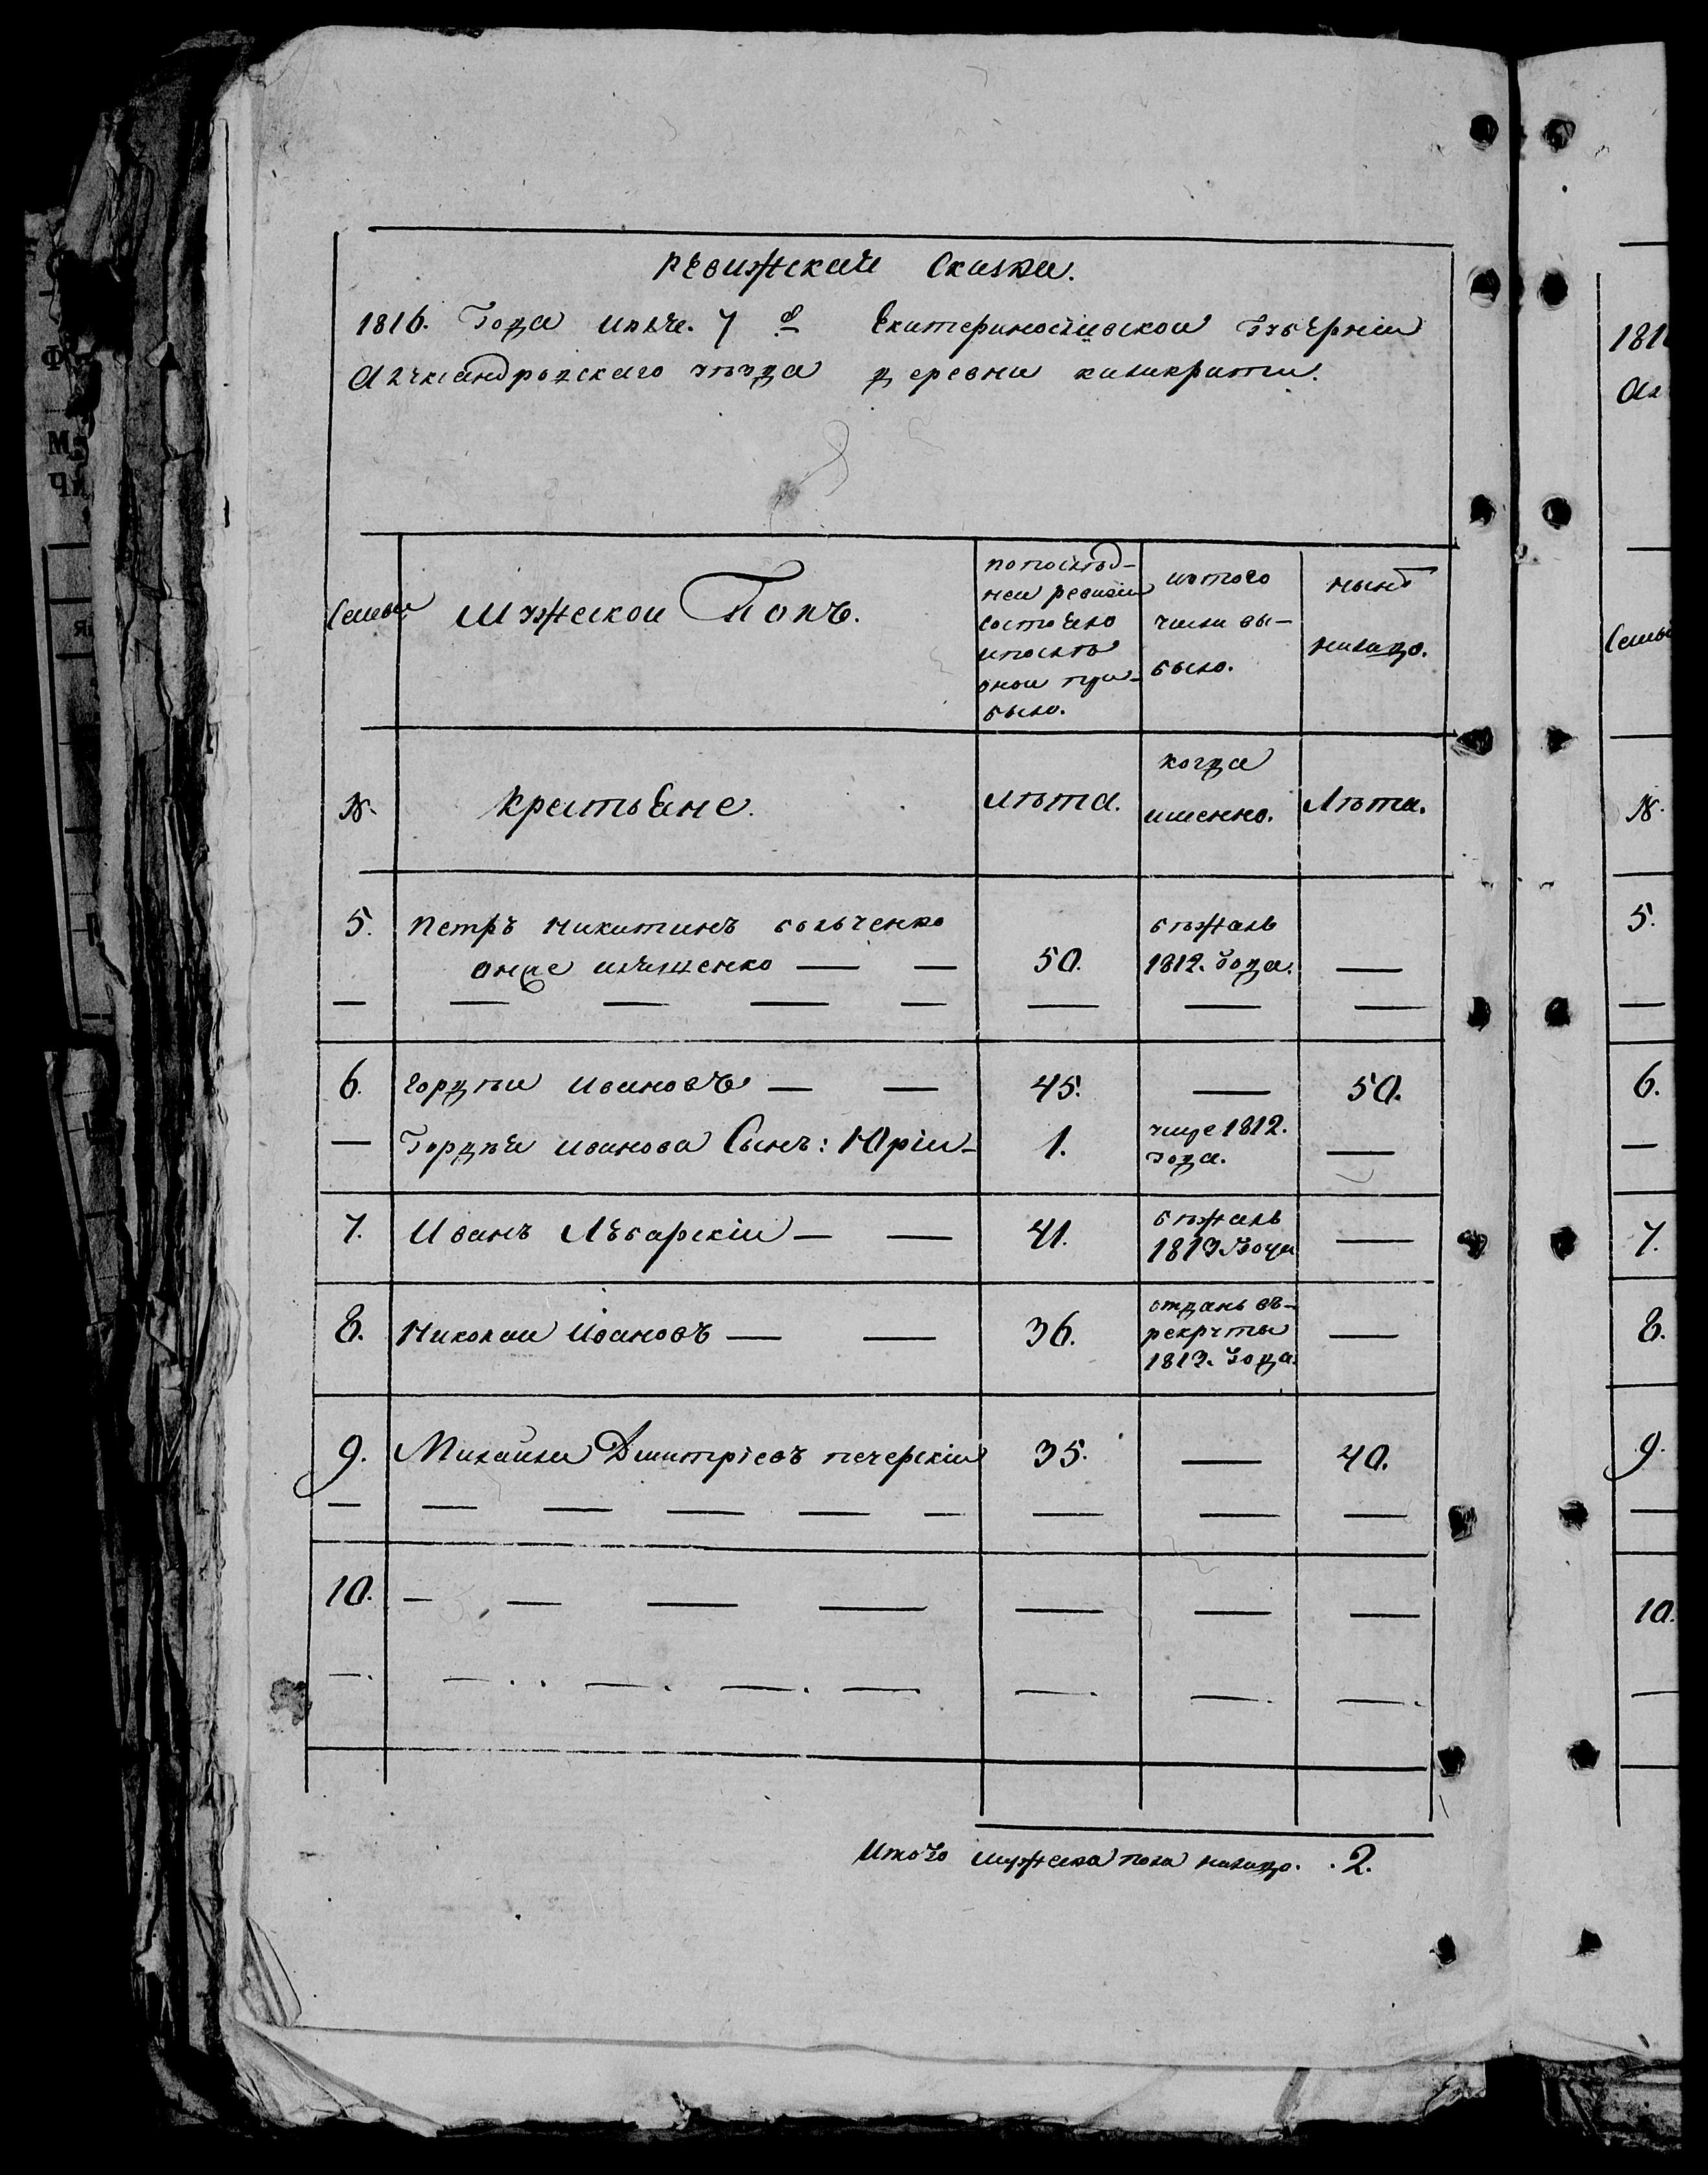 Ревижская Сказка.
1816. Года июля. 7 Екатериносławской Губерніи
Александровскаго уѣзда деревни каликрати.
Семьи
Мужескои Полъ.
попослѣд-
неи ревизіи
состояло
ипослѣ
онои при-
было.
изтого
числа вы-
было.
нынѣ
налицо.
№.
крестьяне.
Лѣта.
когда
именно.
Лѣта.
5. Петръ никитинъ больченко
онже 50. бѣжалъ 1812. Года. —
— — — — — — — —
6. гордѣи ивановъ — — 45. — 50.
— Гордѣя иванова Сынъ: Юріи — 1. 1812. года. —
7. Иванъ Лебарскіи — — 41. бѣжалъ 1813 Года —
8. николаи ивановъ — — 36. отданъ въ рекруты 1813. Года. —
9. Михаила Дмитріевъ печерскіи 35. — 40.
— — — — — — — — —
10. — — — — — — —
—. — . . — . — . — — . — . — .
Итого мужеска пола налицо. . 2.
181
Ал
Семьи
№.
5.
—
6.
—
7.
8.
9.
—
10.
—